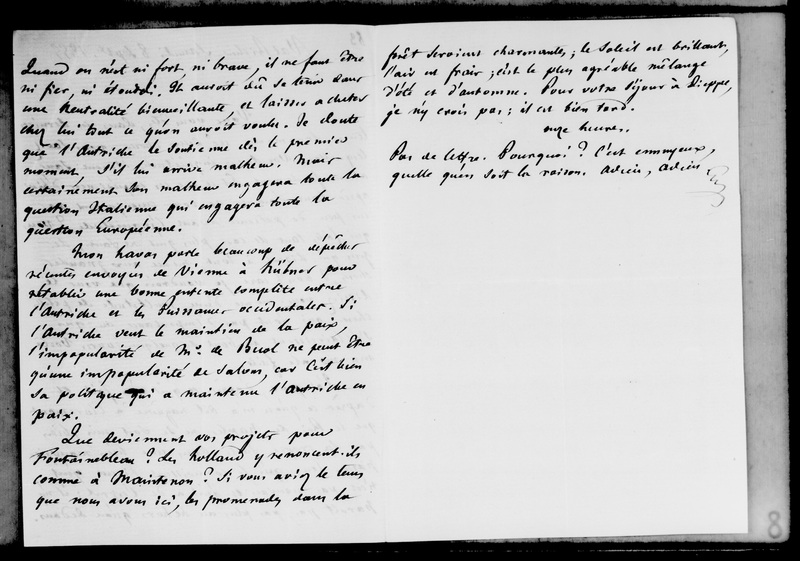 Quand on n'est ni fort, ni brave, il ne faut être
ni fier, ni étourdi. Il auroit dû se tenir dans
une neutralité bienveillante, et laisser acheter
chez lui tout ce qu'on auroit voulu. Je doute
que l'Autriche le soutienne dès le premier
moment, s'il lui arrive malheur. Mais
certainement son malheur engagera toute la
question Italienne qui engagera toute la
question Européenne.
Mon havas parle beaucoup de dépêches
récentes envoyées de Vienne à Hübner pour
rétablir une bonne entente complète entre
l'Autriche et les Puissances occidentales. Si
l'Autriche veut le maintien de la paix,
l'impopularité de Mr. de Buol ne peut être
qu'une impopularité de salons, car c'est bien
sa politique qui a maintenu l'Autriche en
paix.
Que deviennent vos projets pour
Fontainebleau ? Les Holland y renoncent-ils
comme à Maintenon ? Si vous aviez le tems
que nous avons ici, les promenades dans la
forêt seroient charmantes ; le soleil est brillant,
l'air est frais ; c'est le plus agréable mélange
d'été et d'automne. Pour votre séjour à Dieppe,
je n'y crois pas ; il est bien tard.
onze heures.
Pas de lettre. Pourquoi ? C'est ennuyeux,
quelle qu'en soit la raison. Adieu, adieu.
8